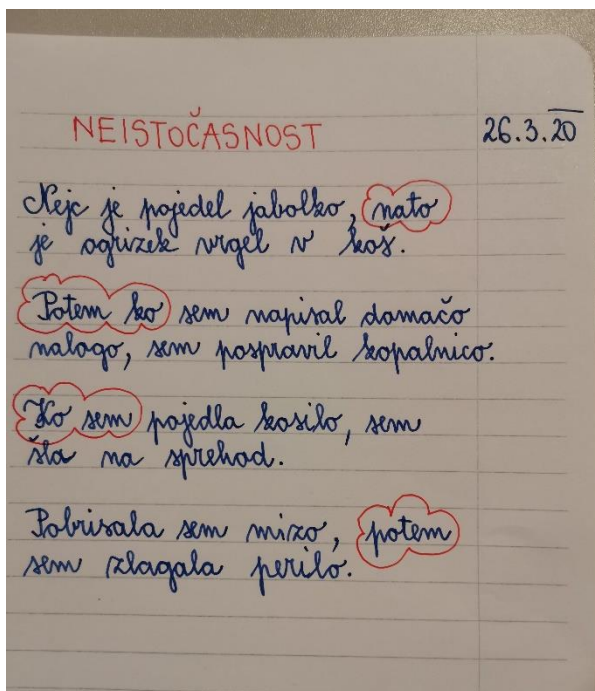 NEISTOČASNOST 26.3.20
Nejc je pojedel jabolko, nato
je ogrizek vrgel v koš.
Potem ko sem napisal domačo
nalogo, sem pospravil kopalnico.
Ko sem pojedla kosilo, sem
šla na sprehod.
Pobrisala sem mizo, potem
sem zlagala perilo.